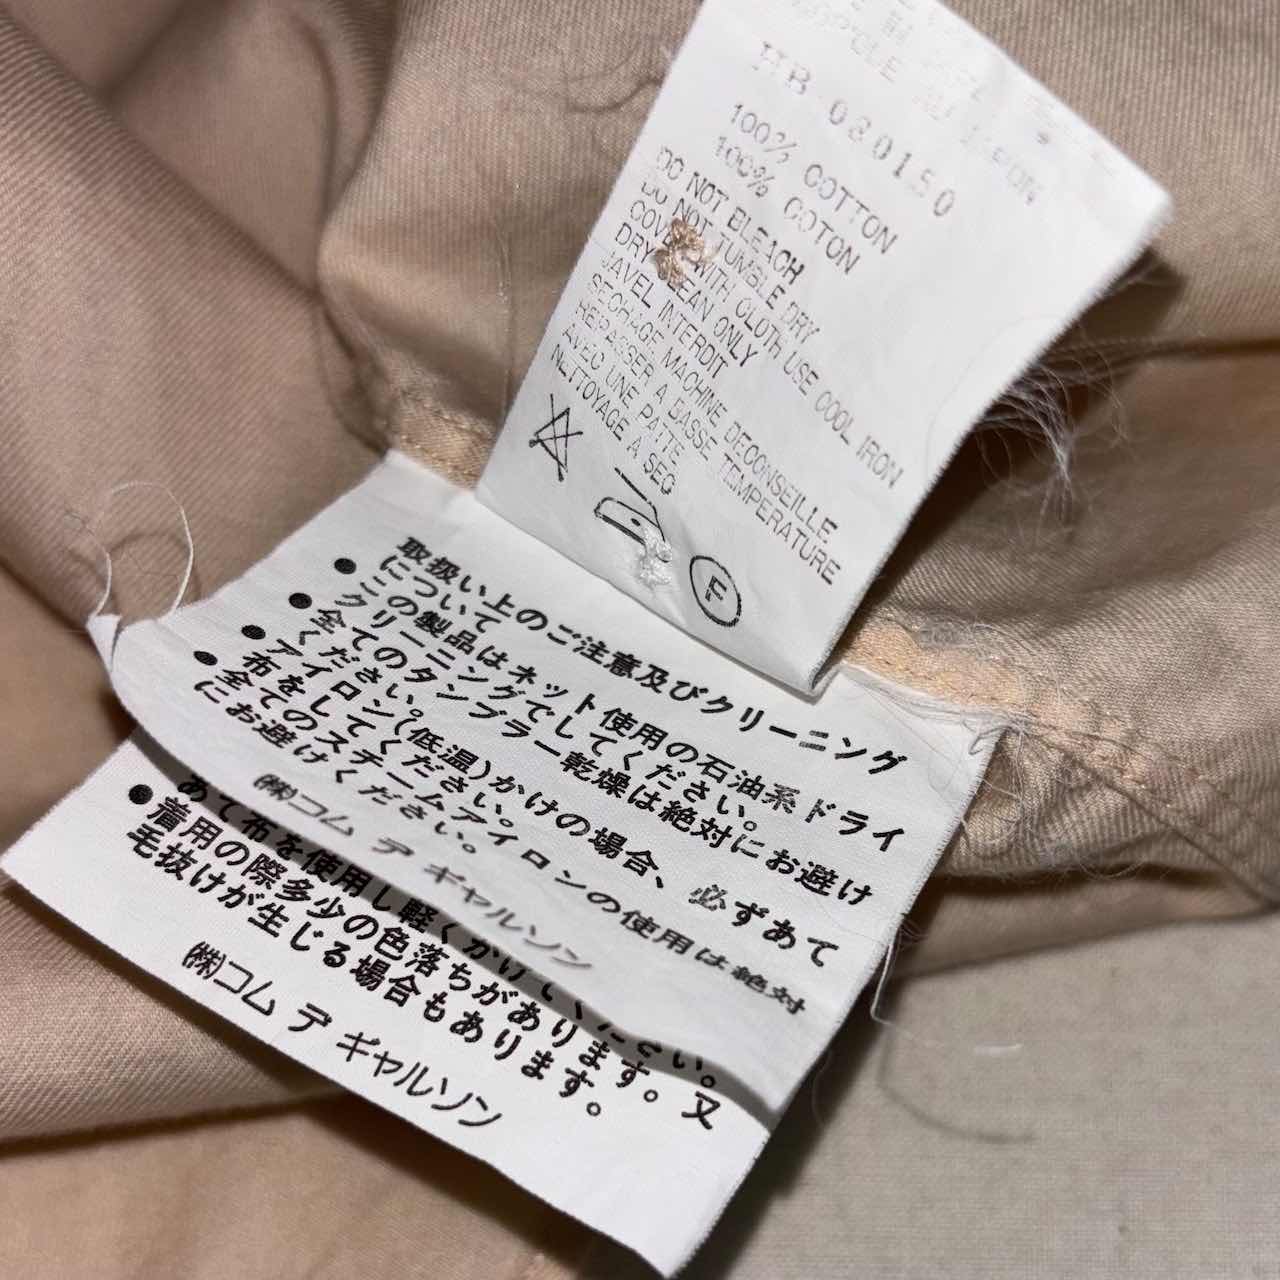 HB 080150
100% COTTON
100% COTON
DO NOT BLEACH
DO NOT TUMBLE DRY
COVER WITH CLOTH USE COOL IRON
DRY CLEAN ONLY
JAVEL INTERDIT
SECHAGE MACHINE DECONSEILLE
REPASSER A BASSE TEMPERATURE
AVEC UNE PATTE
NETTOYAGE A SEC
F
取扱い上のご注意及びクリーニング
について
●この製品はネット使用の石油系ドライ
クリーニングでしてください。
●全てのタンブラー乾燥は絶対にお避け
ください。
●アイロン(低温)かけの場合、必ずあて
布をしてください。
●全てのスチームアイロンの使用は絶対
にお避けください。
㈱コム デ ギャルソン
あて布を使用し軽くかけてください。
●着用の際多少の色落ちがあります。又
毛抜けが生じる場合もあります。
㈱コム デ ギャルソン